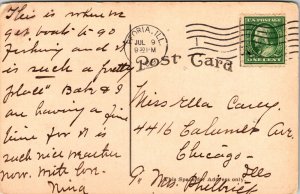 This is where we
get boats to go
fishing and it
is such a pretty
place" Bab & I
are having a fine
time for it is
such nice weather
now. Write soon.
Nina
PEORIA, ILL.
JUL 9
9-PM
1
U.S. POSTAGE
ONE CENT
Post Card
Miss Ella Carey,
4416 Calumet Ave.
Chicago-
Ills
% Mrs. Philbrick
This Space for Address only